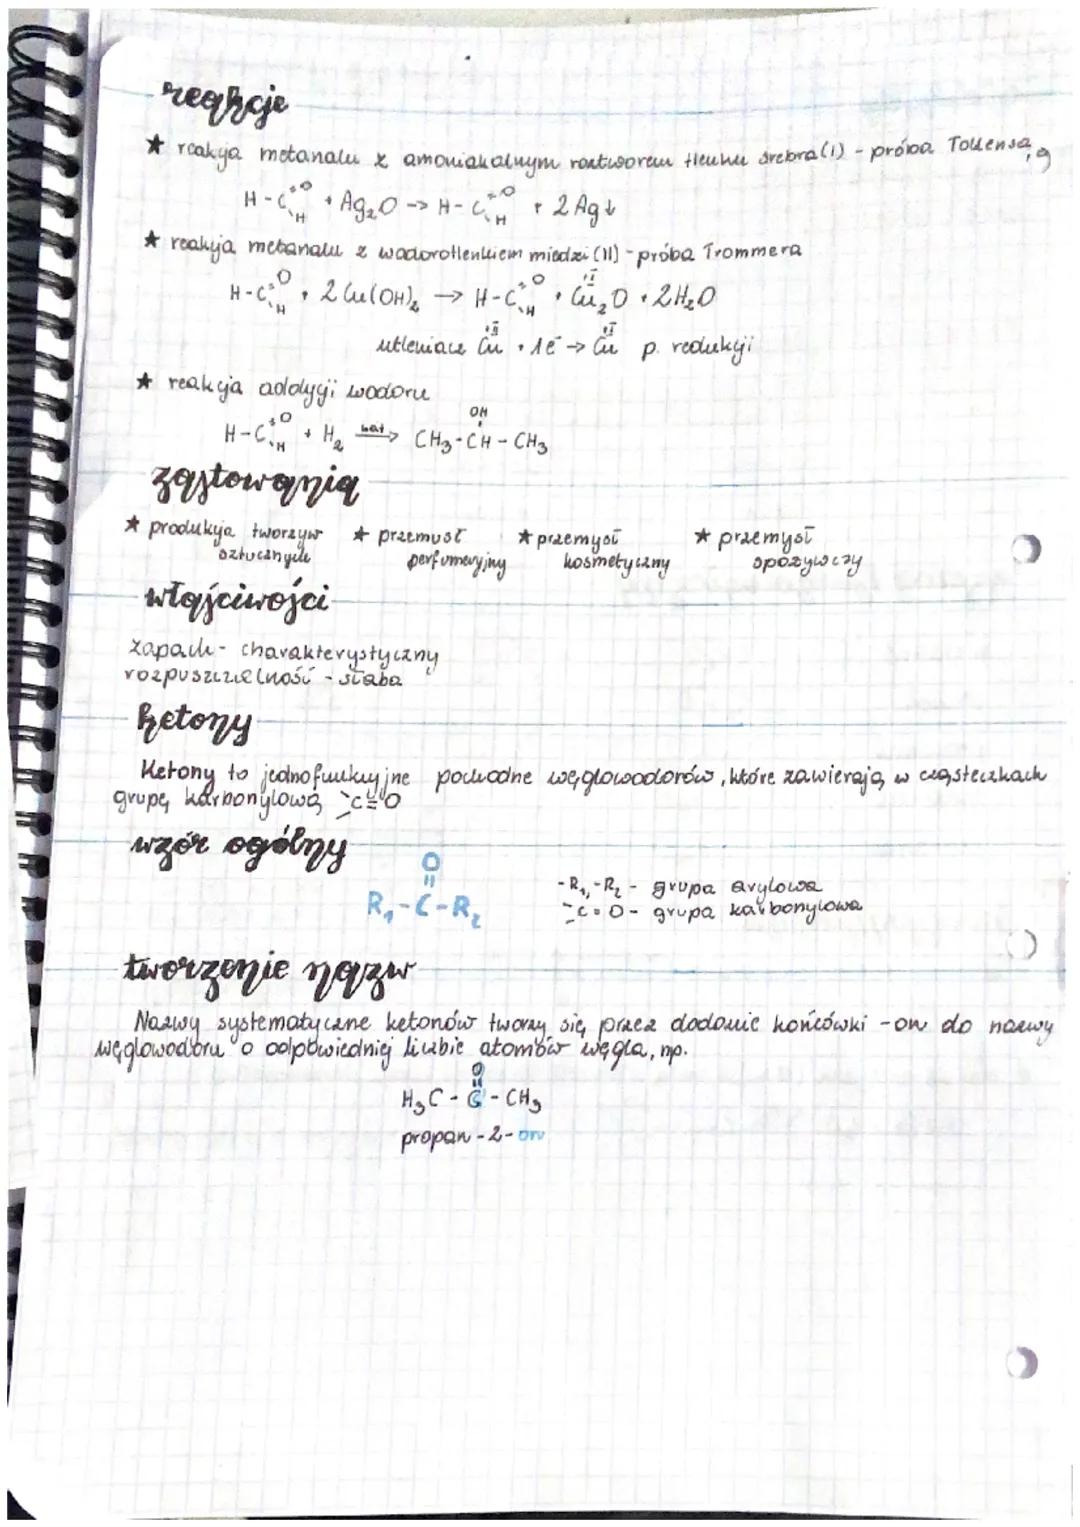 reakcje
★ reakcja metanalu z amoniakalnym roztworem tlenku srebra(I) - próba Tollensa
H-C=O H + Ag₂O -> H-C=O H + 2Ag↓
★ reakcja metanalu z wodorotlenkiem miedzi (II) - próba Trommera
H-C=O H + 2Cu(OH)₂ → H-C=O H + Cu₂O + 2H₂O
utleniacz Cu + 1e⁻ → Cu p. redukcji
★ reakcja addycji wodoru
OH
H-C=O H + H₂ kat> CH₃-CH-CH₃
zastowania
★ produkcja tworzyw sztucznych
★ przemysł perfumeryjny
★ przemysł kosmetyczny
★ przemysł spożywczy
właściwości
zapach - charakterystyczny
rozpuszczelność - słaba
ketony
Ketony to jednofunkcyjne pochodne węglowodorów, które zawierają w cząsteczkach
grupę karbonylową >C=O
wzór ogólny
O
R₁-C-R₂
-R₁,-R₂ - grupa arylowa
>C=O - grupa karbonylowa
tworzenie nazw
Nazwy systematyczne ketonów tworzy się przez dodanie końcówki -on do nazwy
węglowodoru o odpowiedniej liczbie atomów węgla, np.
O
H₃C-C-CH₃
propan-2-on